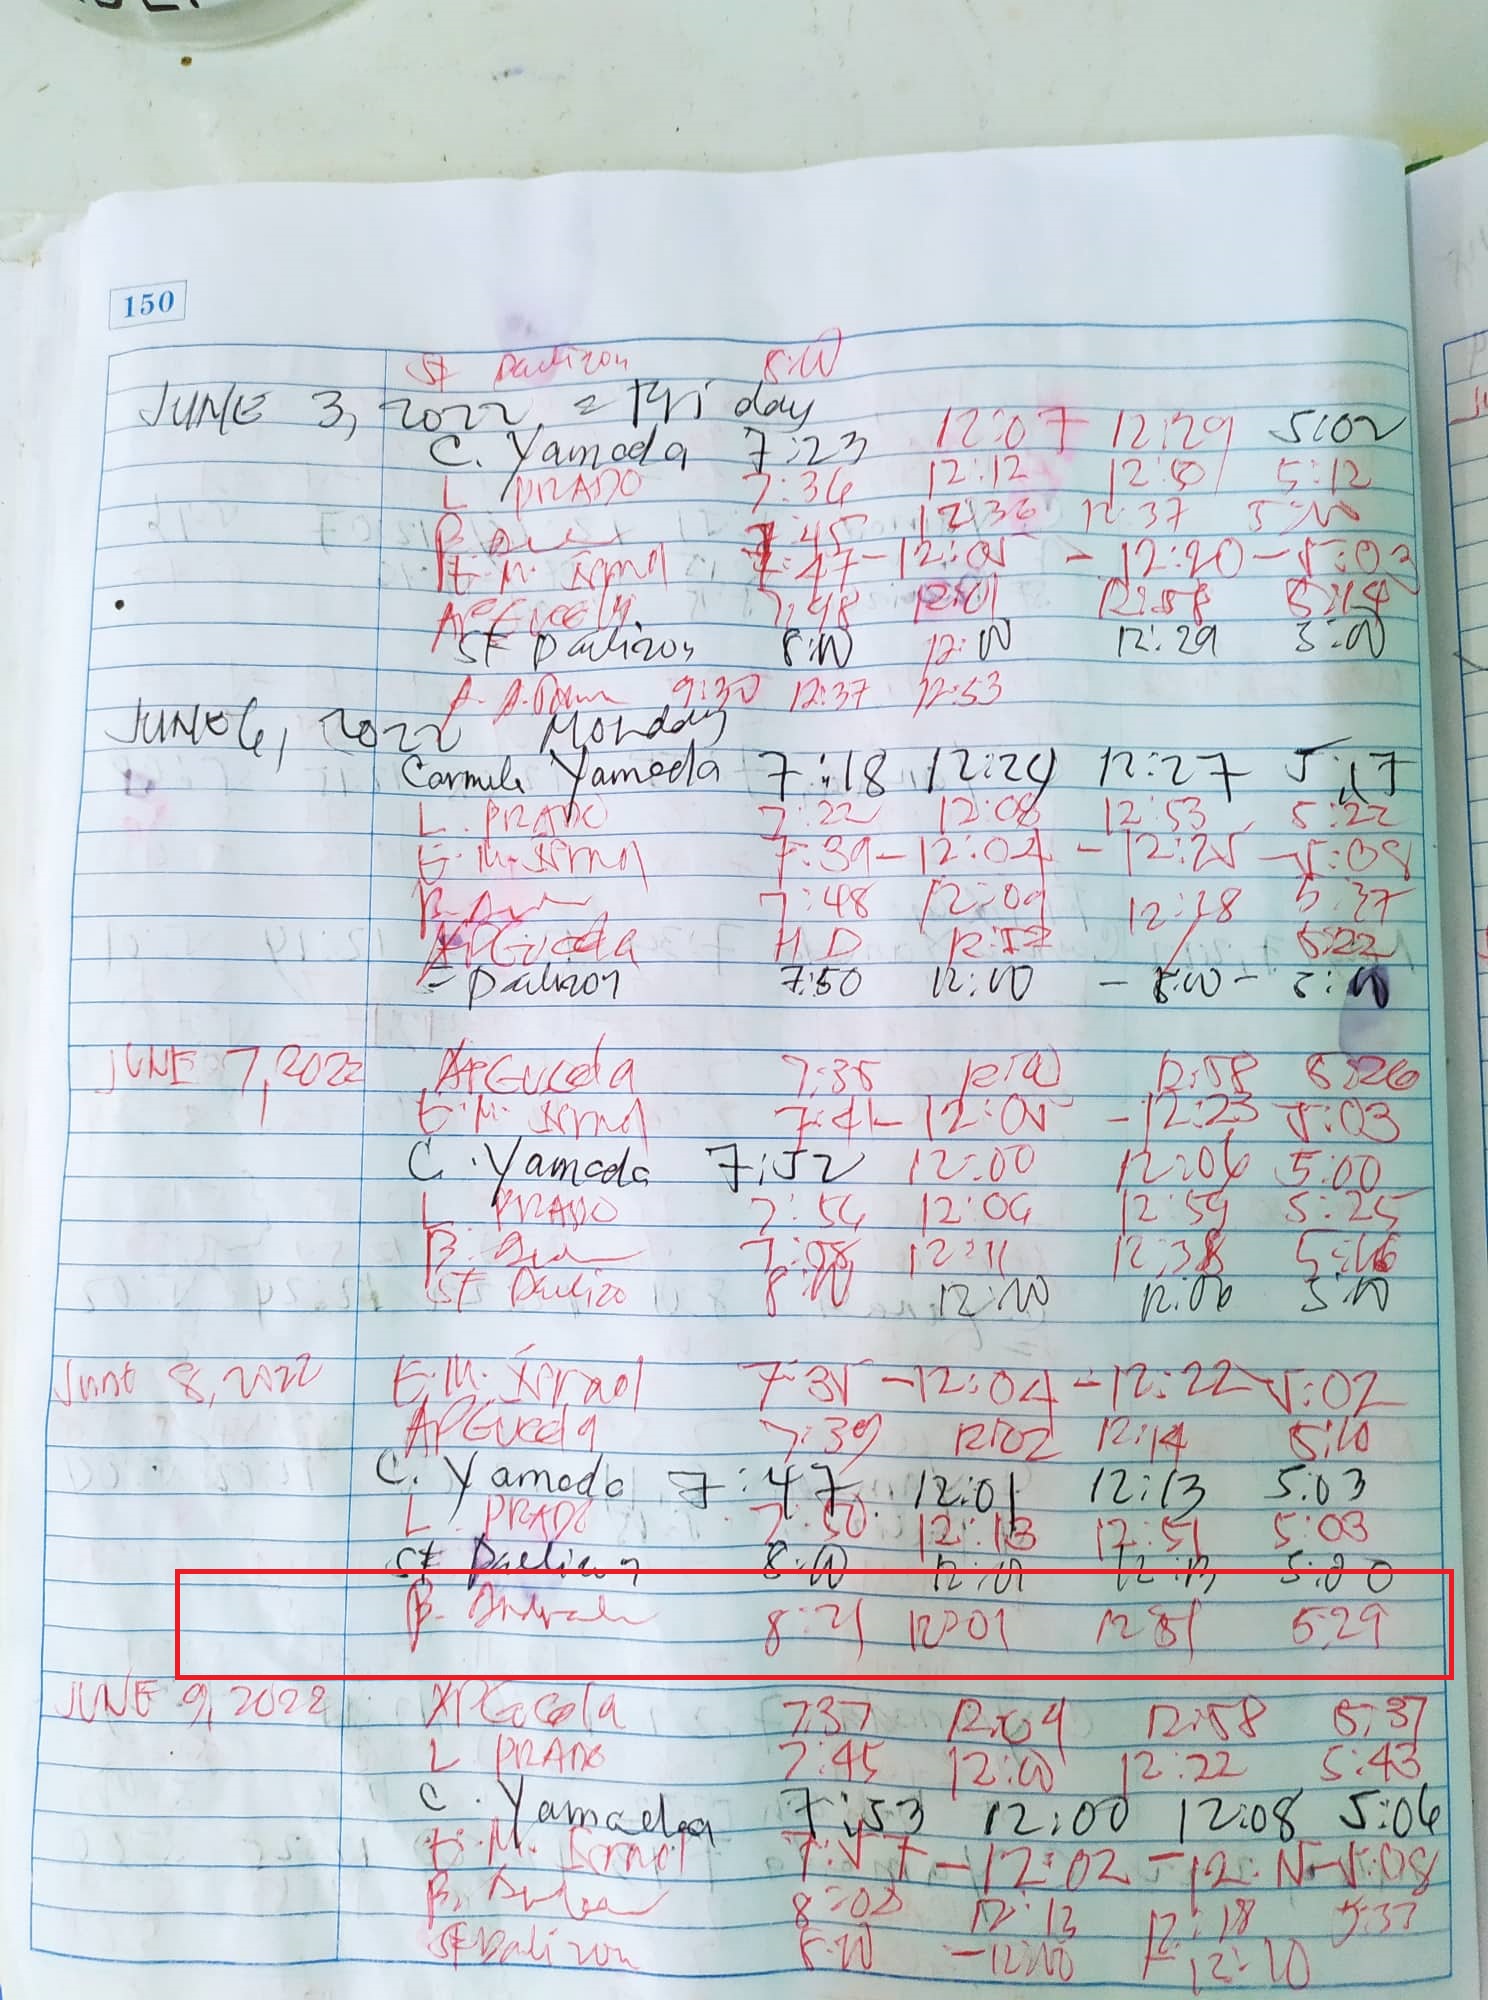 150
St Dalizon 8:00
JUNE 3, 2022 = Friday
C. Yamada 7:23 12:07 12:29 5:02
L PRADO 7:36 12:12 12:50 5:12
B. 7:45 12:36 12:37 5:00
E.M. Israel 7:47 - 12:05 - 12:20 - 5:03
APGuceda 7:48 12:01 12:58 5:14
SE Dalizon 8:00 12:00 12:29 5:00
A. 9:30 12:37 12:53
JUNE 6, 2022 Monday
Carmela Yamada 7:18 12:24 12:27 5:17
L. PRADO 7:22 12:08 12:53 5:22
E.M. Israel 7:39 - 12:04 - 12:25 - 5:08
B. 7:48 12:09 12:38 5:37
APGuceda H.D 12:57 5:22
Dalizon 7:50 12:00 - -
JUNE 7, 2022 APGuceda 7:35 12:00 12:58 5:26
E.M. Israel 7:41 - 12:05 - 12:23 5:03
C. Yamada 7:52 12:00 12:06 5:00
L PRADO 7:56 12:06 12:59 5:25
B. 7:58 12:11 12:38 5:46
SE Dalizo 8:00 12:00 12:06 5:00
June 8, 2022 E.M. Israel 7:35 - 12:04 - 12:22 5:02
APGuceda 7:39 12:02 12:14 5:10
C. Yamada 7:47 12:01 12:13 5:03
L. PRADO 7:50 12:13 12:51 5:03
SE Dalizon 8:00 12:01 12:13 5:00
B. 8:21 12:01 12:51 5:29
JUNE 9, 2022 APGuceda 7:37 12:04 12:58 5:37
L PRADO 7:45 12:00 12:22 5:43
C. Yamada 7:53 12:00 12:08 5:06
E.M. Israel 7:57 - 12:02 - 5:08
B. 8:02 12:13 12:18 5:37
SE Dalizon 8:00 - 12:00 - 12:10